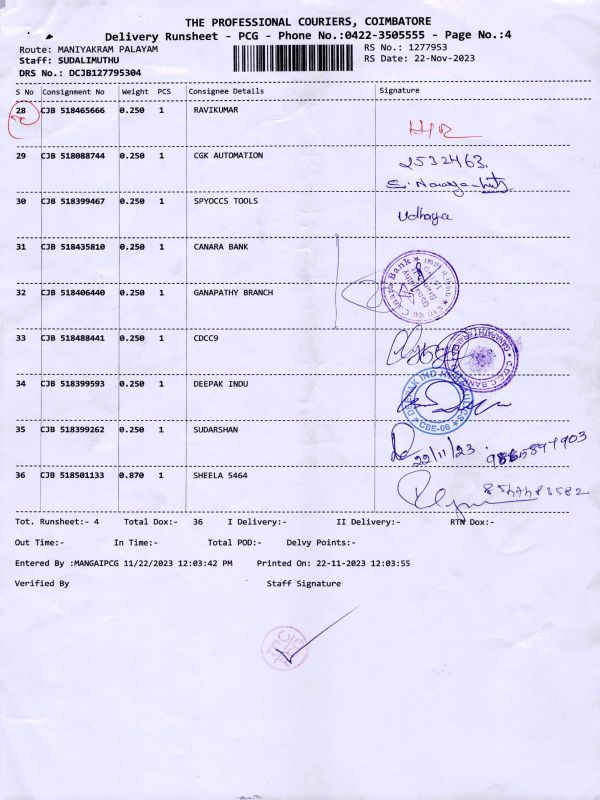 THE PROFESSIONAL COURIERS, COIMBATORE
Delivery Runsheet - PCG - Phone No.:0422-3505555 - Page No.:4
Route: MANIYAKRAM PALAYAM
RS No.: 1277953
Staff: SUDALIMUTHU
RS Date: 22-Nov-2023
DRS No.: DCJB127795304
S No Consignment No Weight PCS Consignee Details Signature
28 CJB 518465666 0.250 1 RAVIKUMAR
29 CJB 518088744 0.250 1 CGK AUTOMATION 2532463.
30 CJB 518399467 0.250 1 SPYOCCS TOOLS Udhaya
31 CJB 518435810 0.250 1 CANARA BANK
Canara Bank
32 CJB 518406440 0.250 1 GANAPATHY BRANCH
33 CJB 518488441 0.250 1 CDCC9
34 CJB 518399593 0.250 1 DEEPAK INDU
CBE-06
35 CJB 518399262 0.250 1 SUDARSHAN
22/11/23
36 CJB 518501133 0.870 1 SHEELA 5464
Tot. Runsheet:- 4 Total Dox:- 36 I Delivery:- II Delivery:- RTN Dox:-
Out Time:- In Time:- Total POD:- Delvy Points:-
Entered By :MANGAIPCG 11/22/2023 12:03:42 PM Printed On: 22-11-2023 12:03:55
Verified By Staff Signature